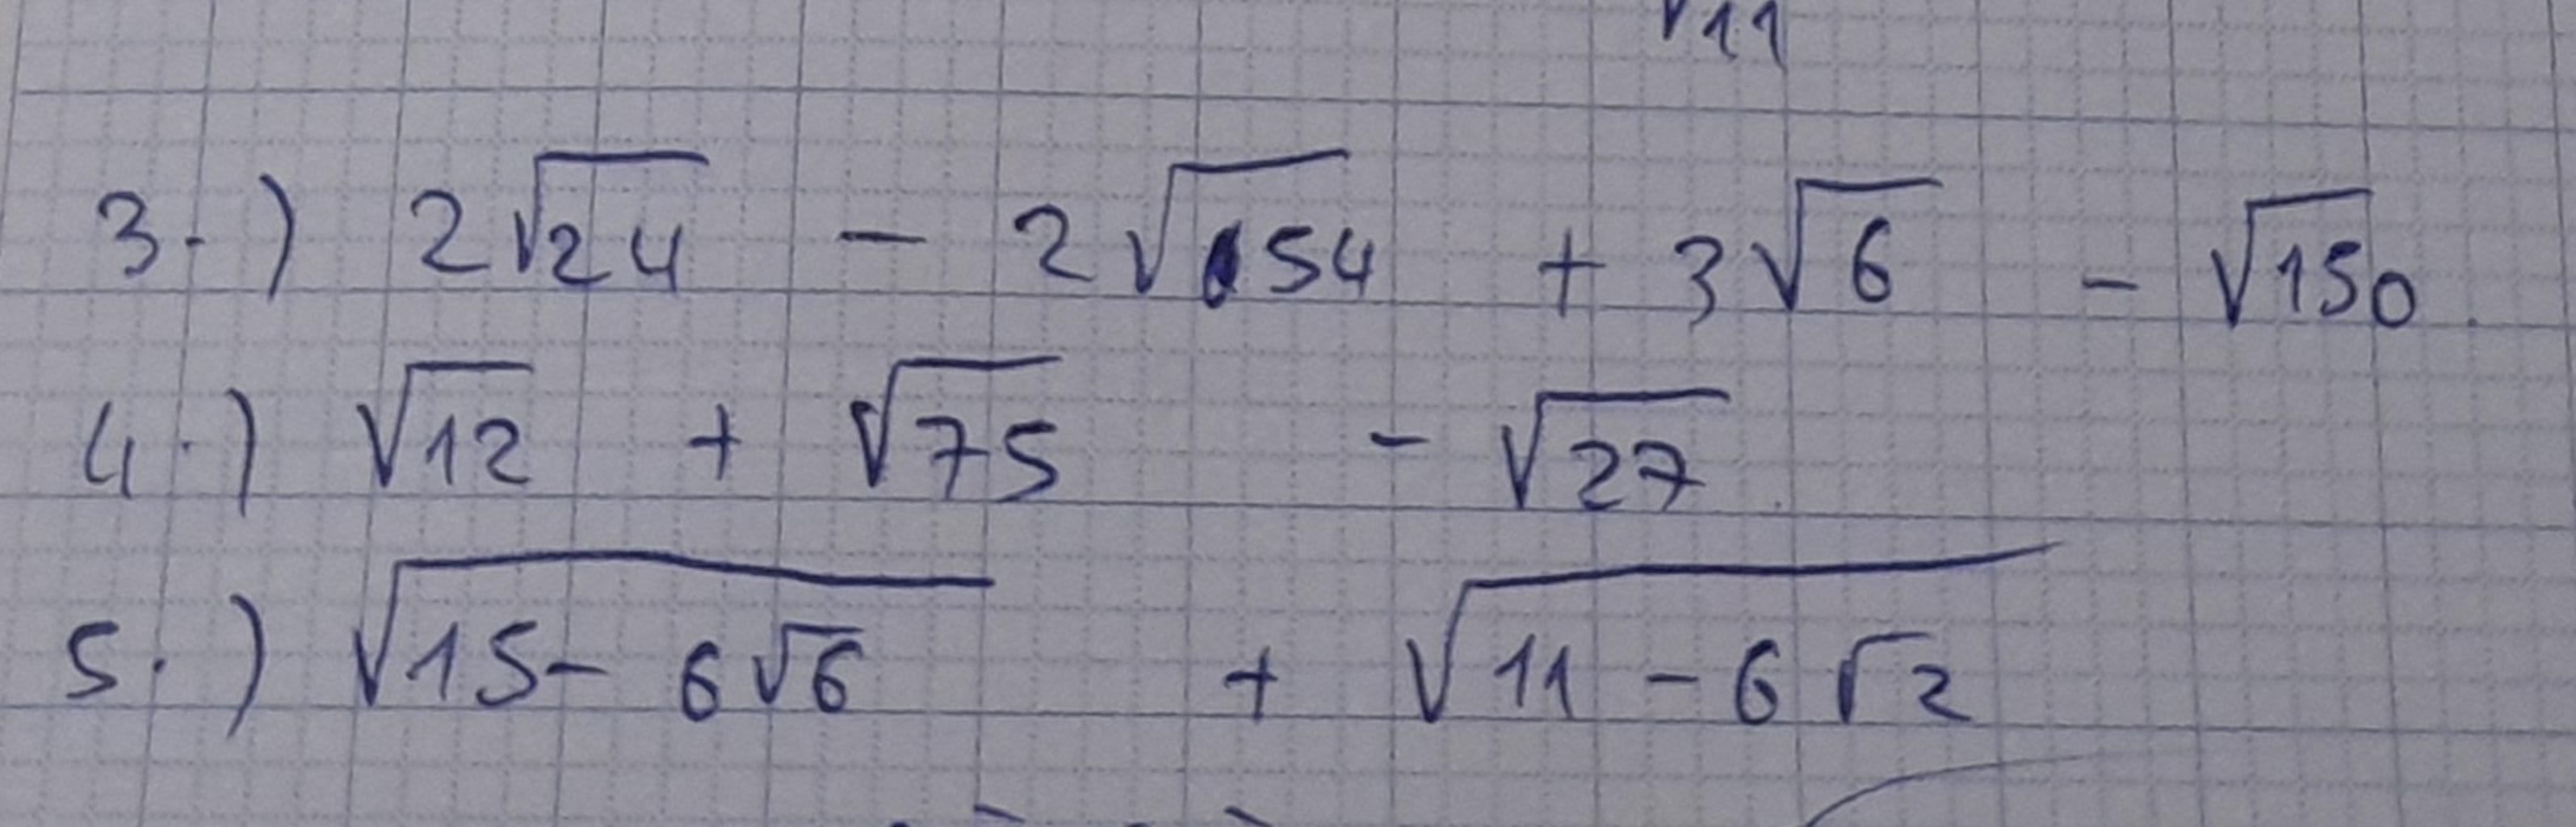 √11
3.) 2√24 - 2√54 + 3√6 - √150
4.) √12 + √75 - √27
5.) √(15 - 6√6) + √(11 - 6√2)